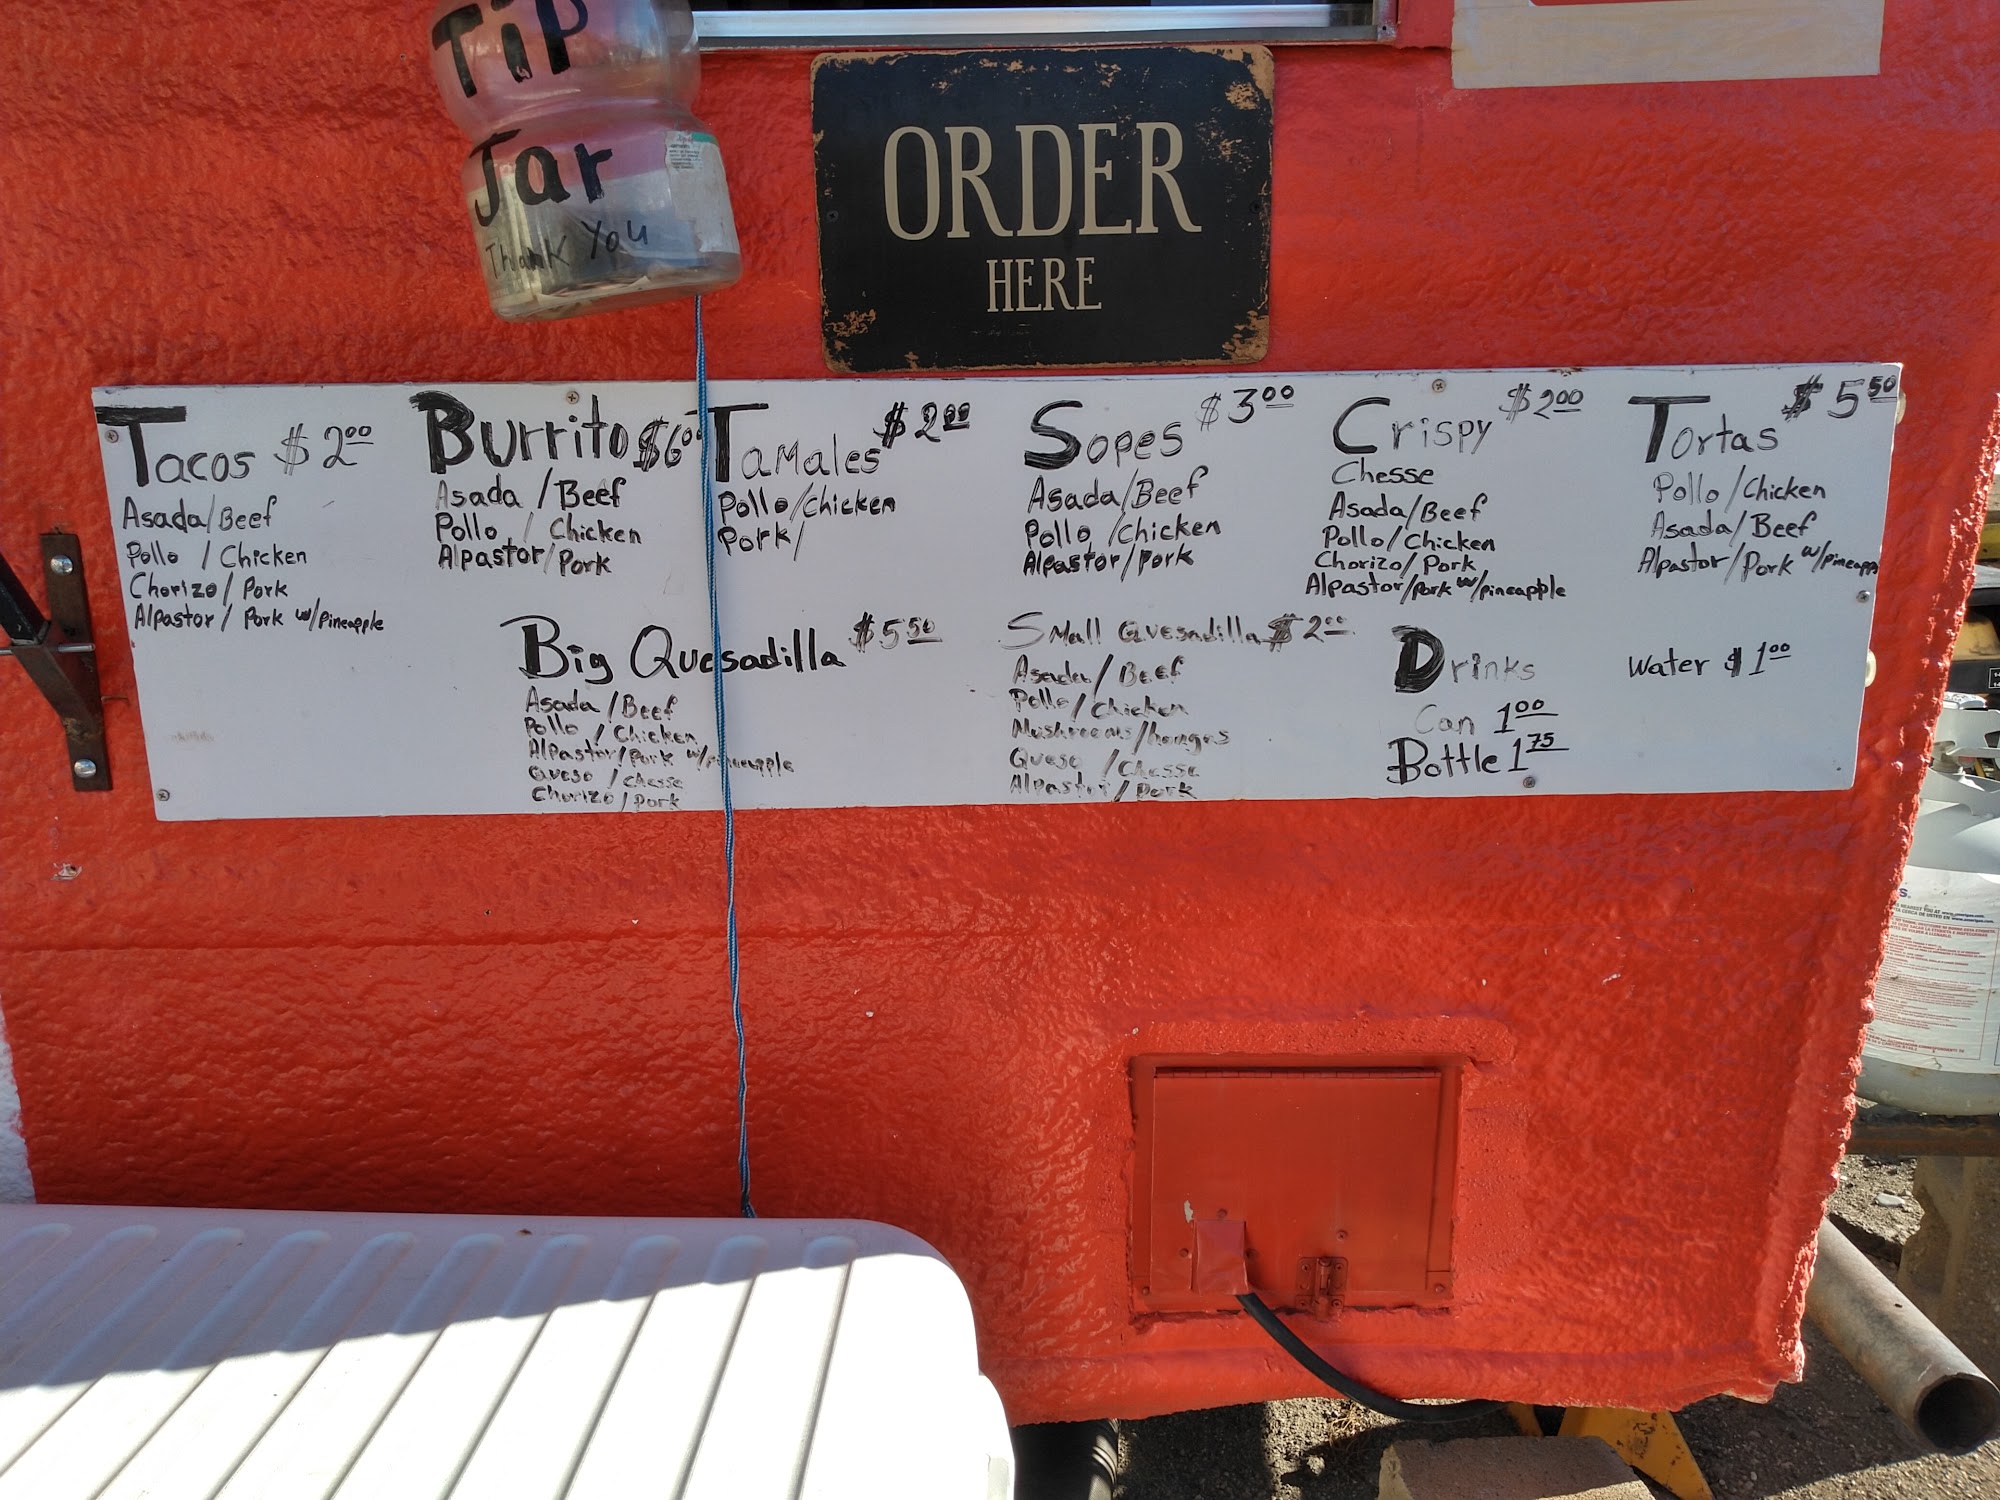 Tip
Jar
Thank You
ORDER
HERE
Tacos $2.00
Asada/Beef
Pollo / Chicken
Chorizo/Pork
Alpastor/ Pork w/pineapple
Burrito $6.00
Asada /Beef
Pollo / Chicken
Alpastor/Pork
Tamales $2.00
Pollo/Chicken
Pork/
Sopes $3.00
Asada/Beef
Pollo /Chicken
Alpastor/pork
Crispy $2.00
Chesse
Asada/Beef
Pollo/Chicken
Chorizo/Pork
Alpastor/pork w/pineapple
Tortas $5.50
Pollo/Chicken
Asada/Beef
Alpastor/Pork w/pineapp
Big Quesadilla $5.50
Asada/Beef
Pollo /Chicken
Alpastor/pork w/pineapple
Queso /chesse
Chorizo/pork
Small Quesadilla $2.00
Asada/Beef
Pollo/Chicken
Mushrooms/hongos
Queso /Chesse
Alpastor/Pork
Drinks
Can 1.00
Bottle 1.75
Water $1.00